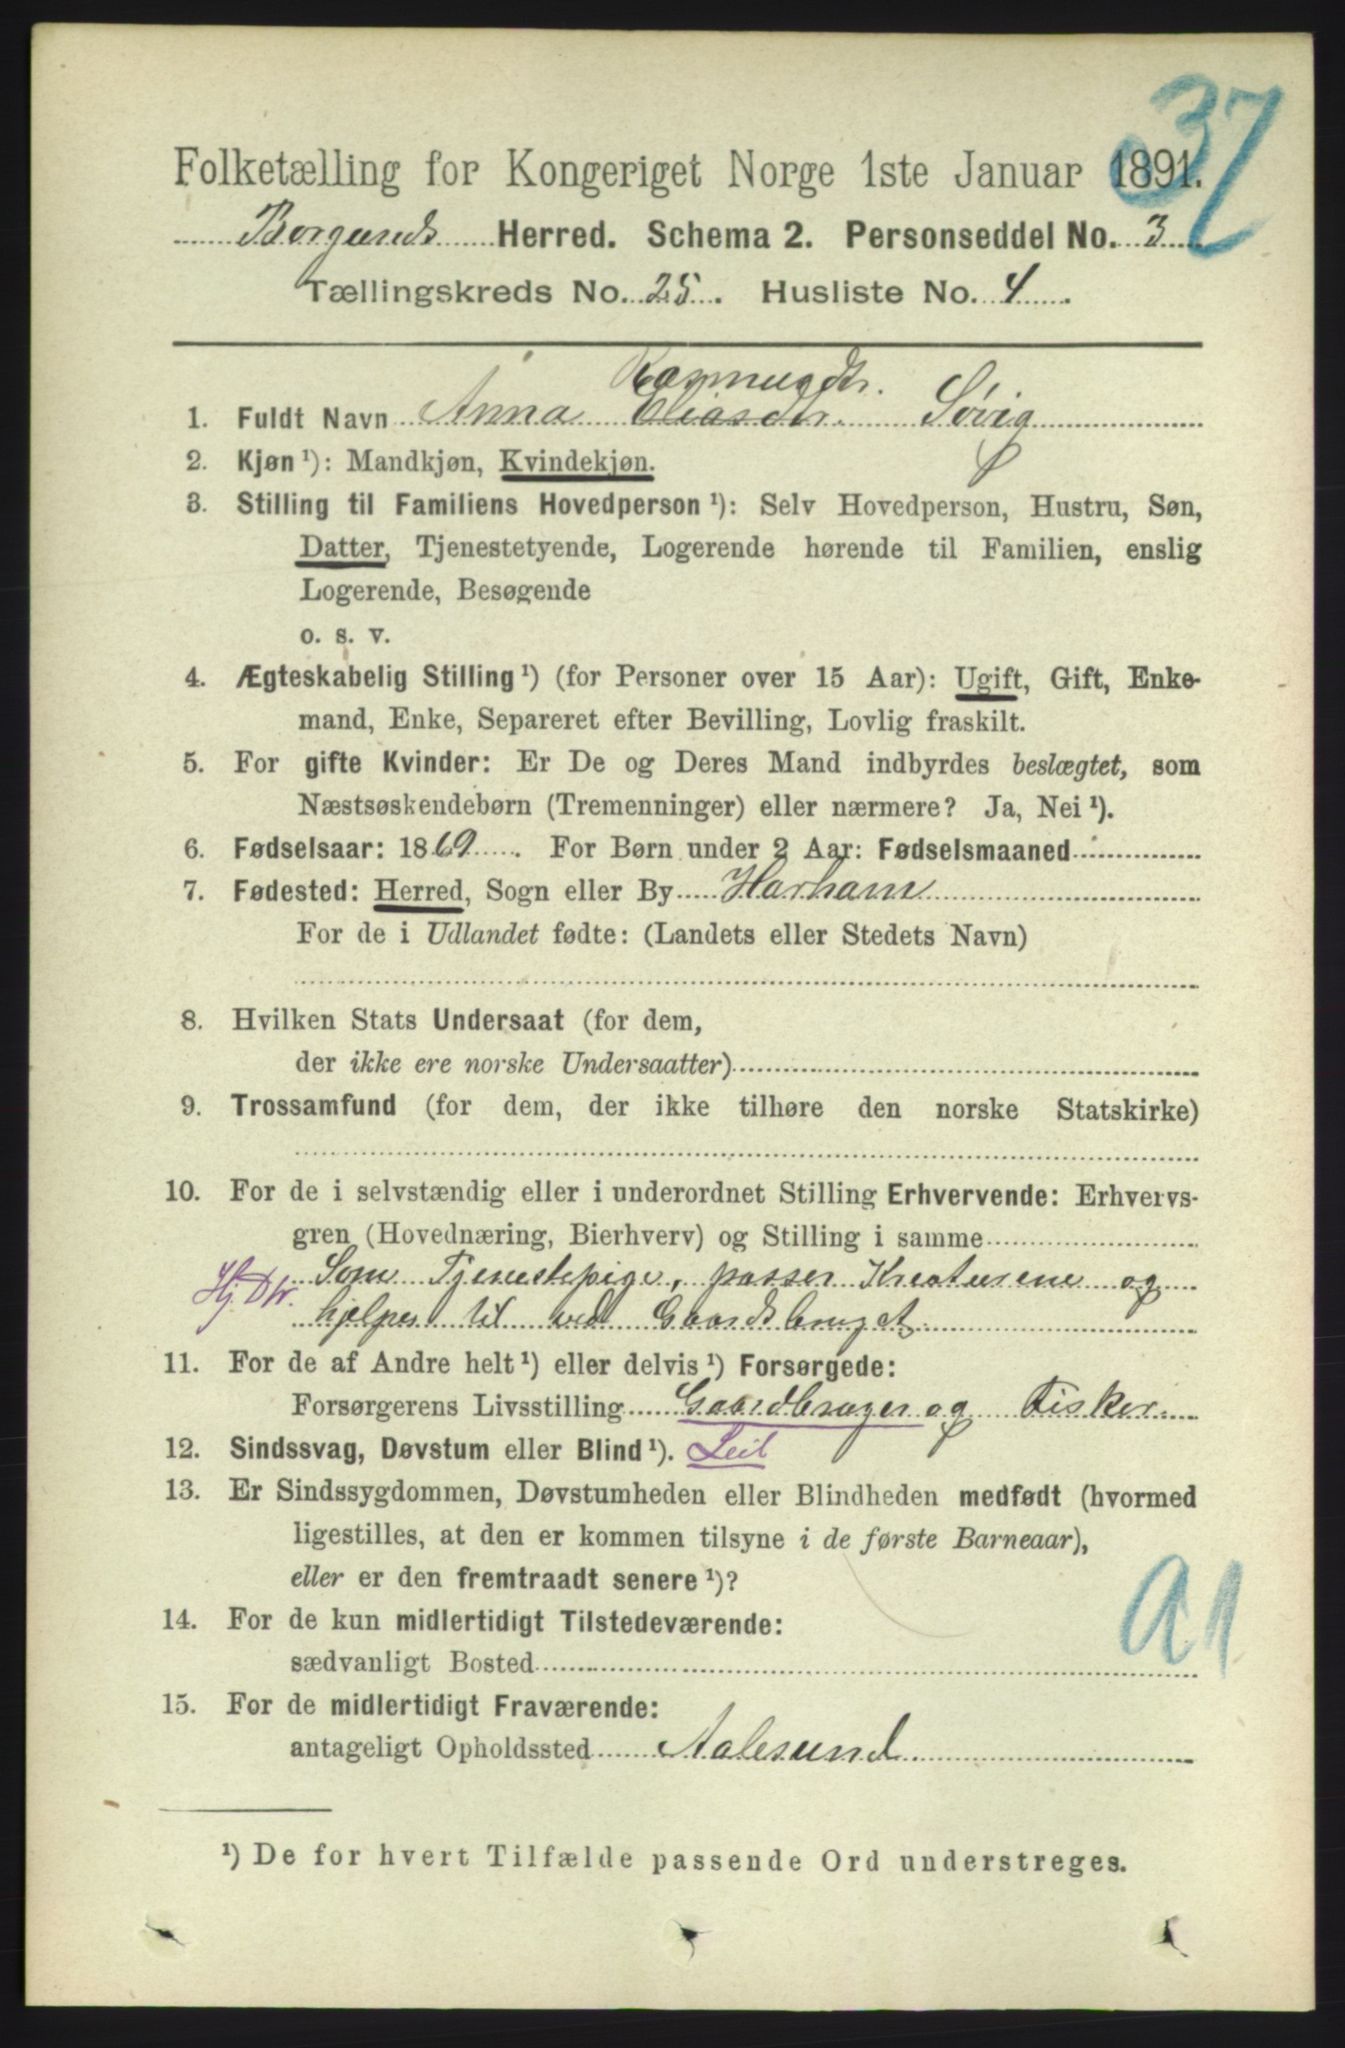 37
Folketælling for Kongeriget Norge 1ste Januar 1891.
Borgunds Herred. Schema 2. Personseddel No. 3
Tællingskreds No. 25. Husliste No. 4.
Rasmusdtr.
1. Fuldt Navn Anna Eliasdtr. Søvig
2. Kjøn ¹): Mandkjøn, Kvindekjøn.
3. Stilling til Familiens Hovedperson ¹): Selv Hovedperson, Hustru, Søn,
Datter, Tjenestetyende, Logerende hørende til Familien, enslig
Logerende, Besøgende
o. s. v.
4. Ægteskabelig Stilling ¹) (for Personer over 15 Aar): Ugift, Gift, Enke-
mand, Enke, Separeret efter Bevilling, Lovlig fraskilt.
5. For gifte Kvinder: Er De og Deres Mand indbyrdes beslægtet, som
Næstsøskendebørn (Tremenninger) eller nærmere? Ja, Nei ¹).
6. Fødselsaar: 1869. For Børn under 2 Aar: Fødselsmaaned
7. Fødested: Herred, Sogn eller By Harham
For de i Udlandet fødte: (Landets eller Stedets Navn)
8. Hvilken Stats Undersaat (for dem,
der ikke ere norske Undersaatter)
9. Trossamfund (for dem, der ikke tilhøre den norske Statskirke)
10. For de i selvstændig eller i underordnet Stilling Erhvervende: Erhvervs-
gren (Hovednæring, Bierhverv) og Stilling i samme
Som Tjenestepige, passer Kreaturene og
Hj. Dtr. hjelper til ved Gaardsbruget
11. For de af Andre helt ¹) eller delvis ¹) Forsørgede:
Forsørgerens Livsstilling Gaardbruger og Fisker
12. Sindssvag, Døvstum eller Blind ¹). Leil
13. Er Sindssygdommen, Døvstumheden eller Blindheden medfødt (hvormed
ligestilles, at den er kommen tilsyne i de første Barneaar),
eller er den fremtraadt senere ¹)?
a1
14. For de kun midlertidigt Tilstedeværende:
sædvanligt Bosted
15. For de midlertidigt Fraværende:
antageligt Opholdssted Aalesund
¹) De for hvert Tilfælde passende Ord understreges.